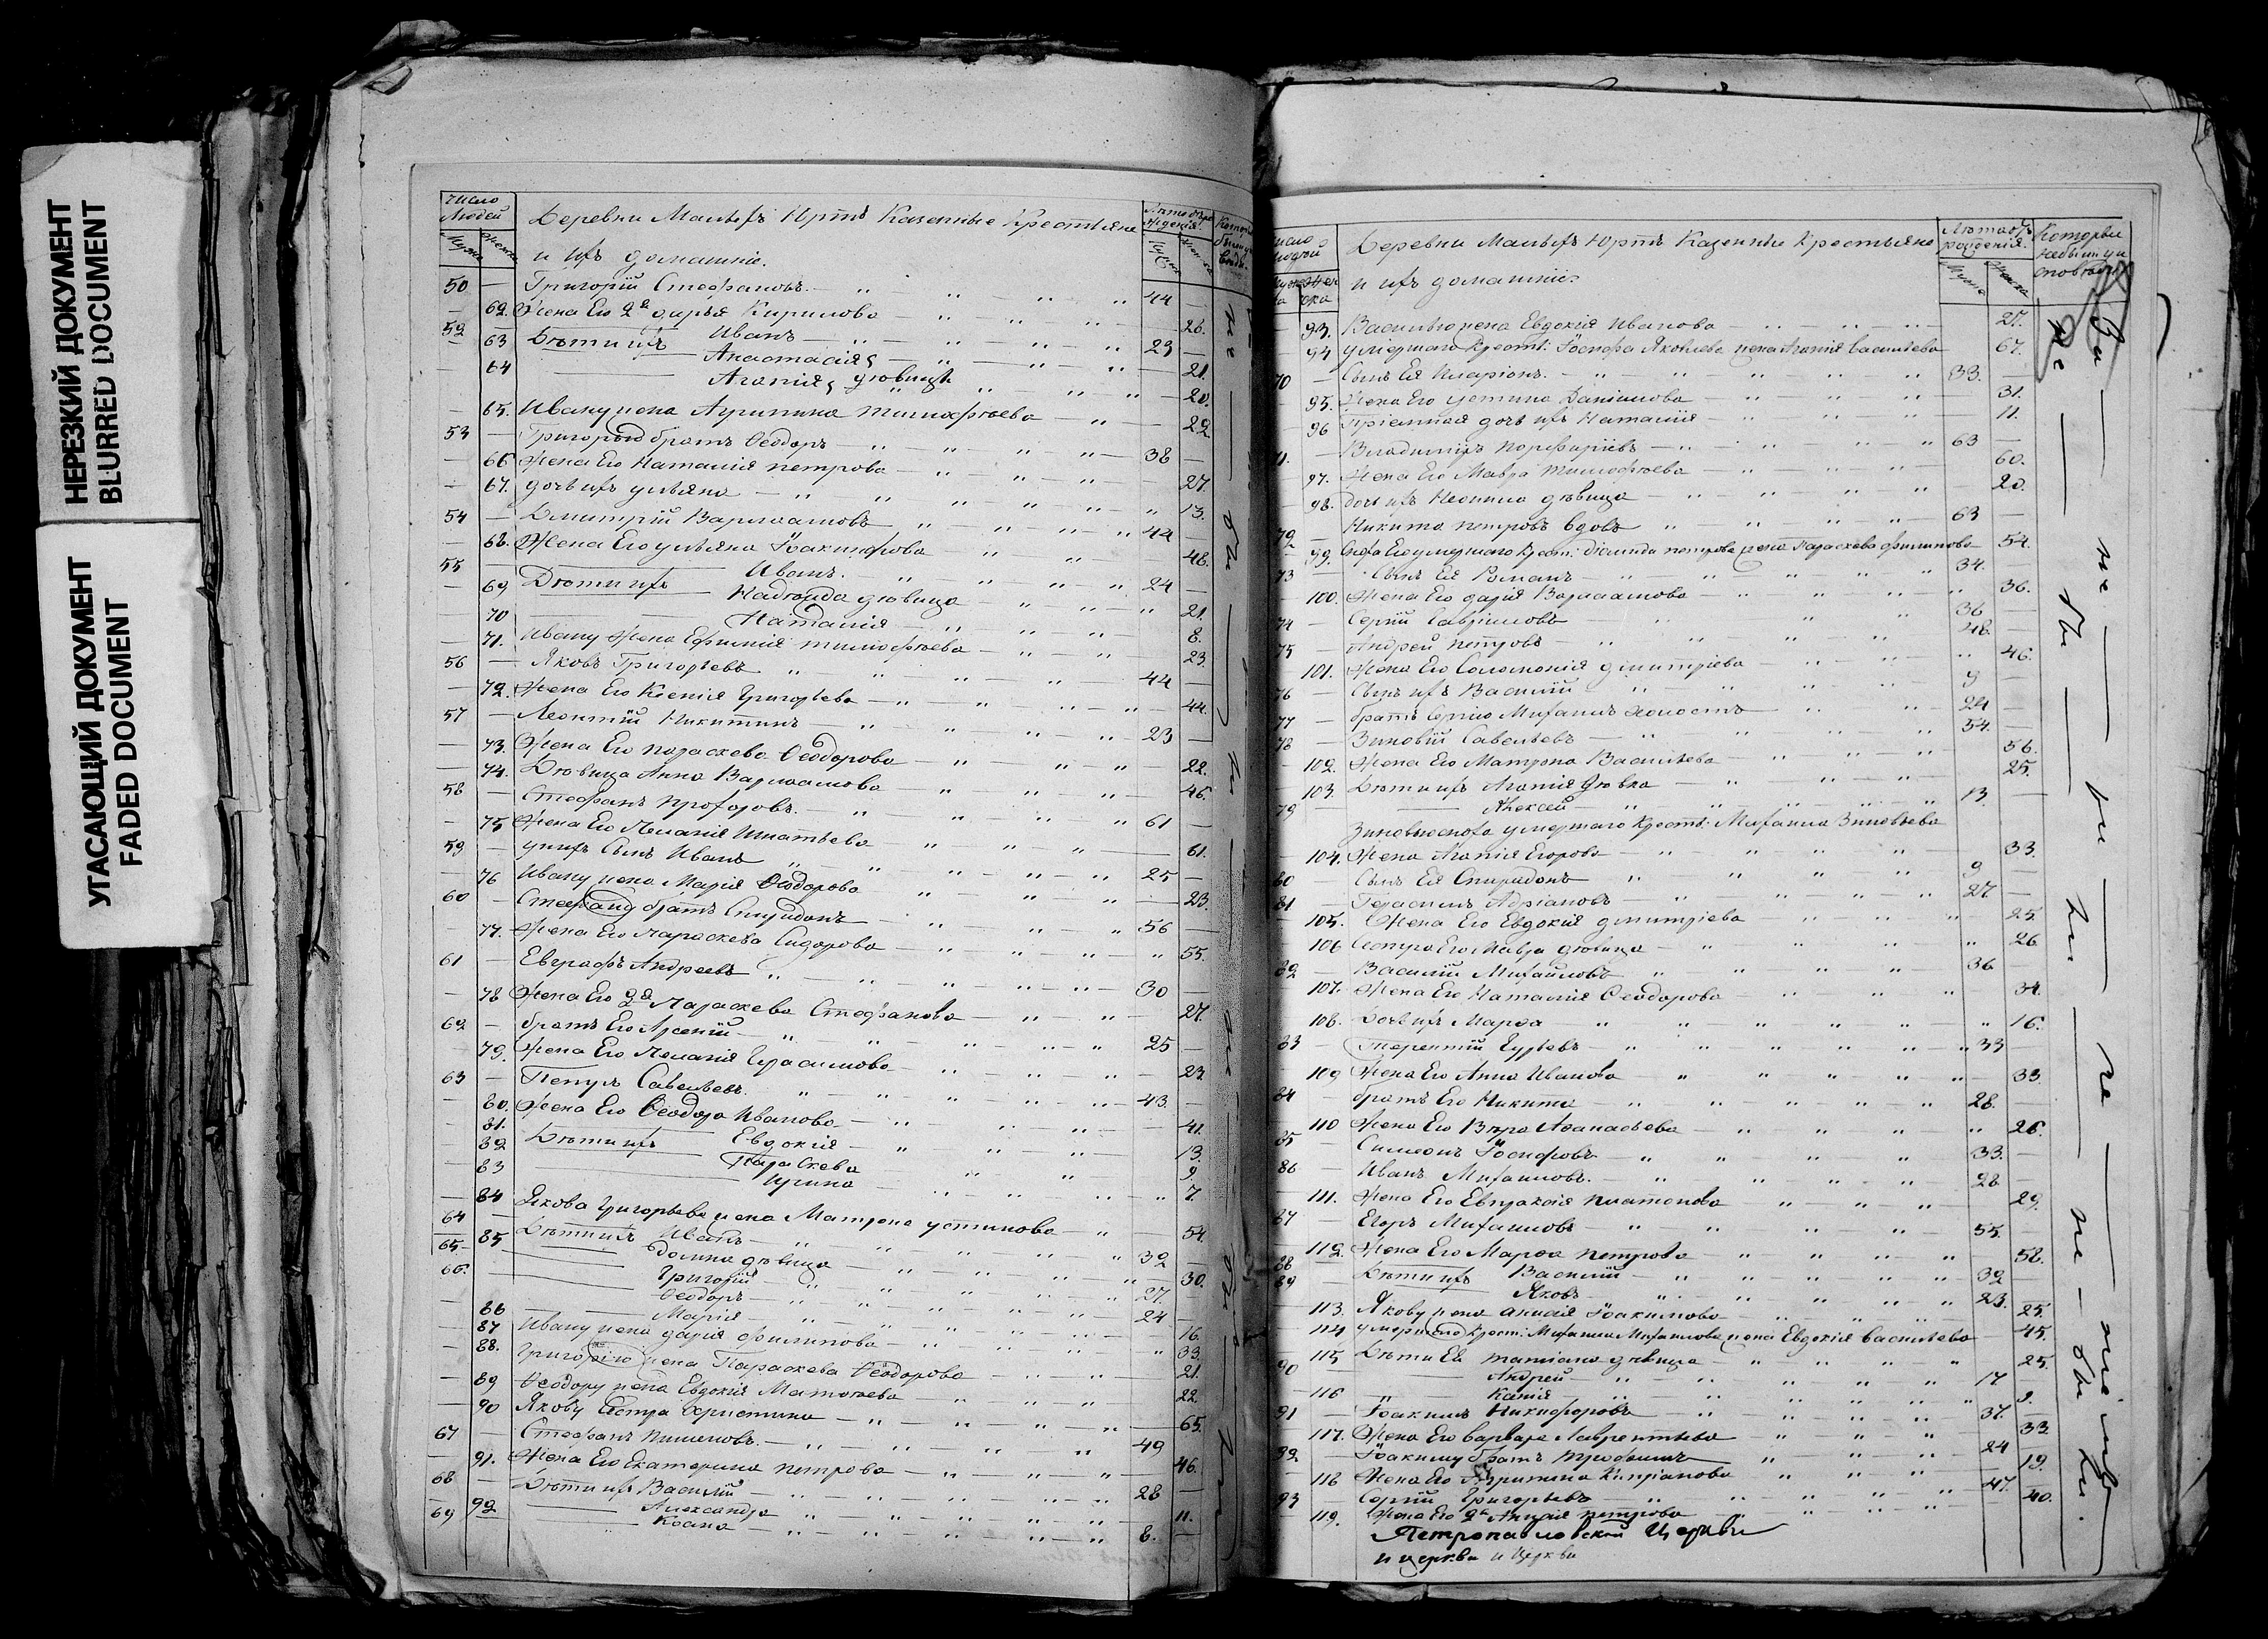 НЕРЕЗКИЙ ДОКУМЕНТ
BLURRED DOCUMENT
УГАСАЮЩИЙ ДОКУМЕНТ
FADED DOCUMENT
число Людей
Деревни Малыхъ Казенные Крестьяне
и ихъ домашніе.
50 — Григорій Стефановъ — 44 —
— 62. Жена Его 2я дарья Кирилова — 26.
52 Дѣти ихъ Иванъ — 23 —
63 Анастасія — 21.
64 Агапія дѣвицы — 20.
— 65. Ивану жена Агрипина тимофѣева — 22
53 — Григорью братъ Ѳеодоръ — 38 —
— 66 Жена Его Наталія петрова — 27.
— 67. дочь ихъ ульяна — 13.
54 — Дмитрій Варлаамовъ — 44 —
— 68. Жена Его ульяна Іоакимова — 48.
55 — Дѣти ихъ Иванъ. — 24 —
— 69 Надежда дѣвица — 21.
70 Наталія — 8.
— 71. Ивану жена Ефимія тимофѣева — 23.
56 — Яковъ Григорьевъ — 44 —
— 72. Жена Его Ксенія Григорьева — 44.
57 — Леонтій Никитинъ — 23 —
— 73. Жена Его параскева Ѳеодорова — 22.
— 74. Дѣвица Анна Варлаамова — 46.
58 — Стефанъ прохоровъ. — 61 —
— 75 Жена Его Пелагія Игнатьева — 61.
59 — у нихъ Сынъ Иванъ — 25 —
— 76 Ивану жена Марія Ѳеодорова — 23.
60 — Стефану братъ Спиридонъ — 56 —
— 77. Жена Его Параскева Сидорова — 55.
61 — Евграфъ Андреевъ — 30 —
— 78 Жена Его 2я Параскева Стефанова — 27.
62 — братъ Его Арсеній — 25 —
— 79. Жена Его Пелагія Герасимова — 23.
63 — Петръ Савельевъ. — 43. —
— 80. Жена Его Ѳеодора Иванова — 41.
81. Дѣти ихъ Евдокія — 13.
82 Параскева 9.
83 Ирина — 7.
— 84 Якова Григорьева жена Матрона устинова — 54.
64 — Дѣти ихъ Иванъ — 32
65 — 85 Домна дѣвица — 30.
66. Григорій — 27.
Ѳеодоръ — 24 —
86 Марія — 16.
— 87 Ивану жена дарія филипова — 33.
— 88. Григорію жена Параскева Ѳеодорова — 21.
— 89 Ѳеодору жена Евдокія Матвѣева — 22.
— 90 Якову сестра Христина — 65.
67 — Стефанъ пименовъ. — 49
— 91. Жена Его Екатерина петрова — 46.
68 — Дѣти ихъ Василій — 28 —
92 Александра — 11.
69 Косма — 8. —
Деревни Малыхъ Казенные Крестьяне
и ихъ домашніе.
Лѣта отъ рожденія.
— 93. Василью жена Евдокія Иванова — 27.
— 94 умершаго Крест: Іосифа Яковлева жена Агапія васильева 67.
70 — Сынъ Ея Иларіонъ. — 33. —
— 95. Жена Его устина Данилова — 31.
— 96 пріемная дочь ихъ Наталія — 11.
— Владиміръ порфиріевъ — 63 —
— 97. Жена Его Мавра тимофѣева — 60.
— 98. дочь ихъ Неонила дѣвица — 20.
72 Никита петровъ вдовъ — 63 —
— 99. Сноха Его умершаго Крест: петрова жена Параскева филипова 54.
73 — Сынъ Ея Романъ — 34. —
— 100. Жена Его дарія Варлаамова — 36.
74 — Сергій Гавриловъ — 36 —
75 — Андрей петровъ — 48. —
101. Жена Его Соломонія дмитріева — 46.
76 — Сынъ ихъ Василій — 9 —
77 — братъ Сергію Михаилъ холостъ — 24 —
78 — Зиновій Савельевъ — 54. —
— 102. Жена Его Матрона Васильева — 56.
— 103. Дѣти ихъ Агапія дѣвка — 25.
79 Алексѣй — 13. —
Зиновью сноха умершаго Крест: Михаила Зиновьева
— 104. Жена Агапія Егорова — 33.
80 — Сынъ Ея Спиридонъ — 9 —
81 — Герасимъ Адріановъ — 27. —
105. Жена Его Евдокія дмитріева — 25.
106 Сестра Его Мавра дѣвица — 26
82 — Василій Михайловъ — 36
107. Жена Его Наталія Ѳеодорова — 34.
108. Дочь ихъ Марѳа — 16.
83 — терентій Гурьевъ — 33
109 Жена Его Анна Иванова — 33.
84 — братъ Его Никита — 28. —
110 Жена Его Вѣра Аѳанасьева — 26.
85 — Симеонъ Іосифовъ — 33. —
86 — Иванъ Михаиловъ. — 28 —
— 111. Жена Его Евпраксія платонова — 29.
87 — Егоръ Михаиловъ — 55. —
— 112. Жена Его Марѳа петрова — 58.
88 Дѣти ихъ Василій — 32
89 Яковъ — 23.
— 113. Якову жена Іоакимова — 25.
— 114 Крест: Михаила Михаилова жена Евдокія васильева 45.
115 Дѣти Ея татіана дѣвица — 25.
90 Андрей — 17
— 116 Ксенія — 9.
91 — Іоакимъ Никифоровъ — 37. —
— 117. Жена Его варвара Лаврентьева — 33.
92 — Іоакиму братъ трофимъ — 24
— 118 Жена Его Агрипина Кипріанова — 19.
93 — Сергій Григорьевъ — 47. —
119. Жена Его 2я петрова — 40.
Петропавловской Церкви
и церкви и Церкви